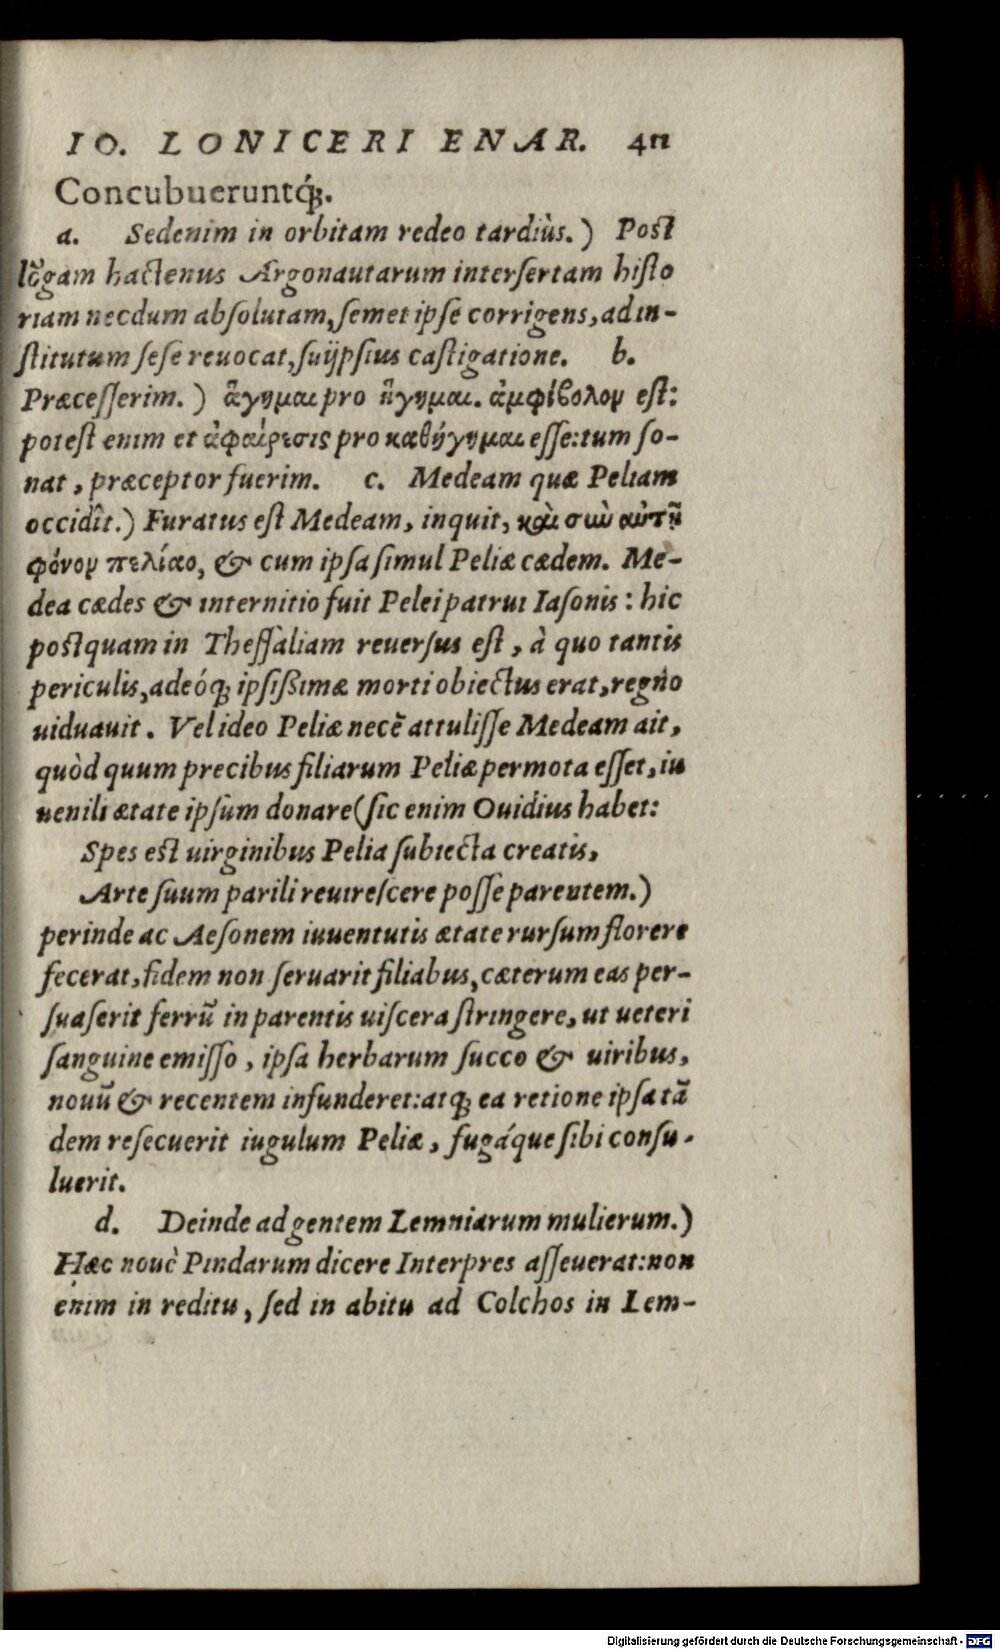 IO. LONICERI ENAR. 411
Concubueruntq́;.
a. Sedenim in orbitam redeo tardiùs.) Post
lõgam hactenus Argonautarum intersertam histo
riam necdum absolutam, semet ipse corrigens, ad in-
stitutum sese reuocat, suijpsius castigatione. b.
Præcesserim.) ἅγημαι pro ἥγημαι. ἀμφίβολον est:
potest enim et ἀφαίρεσις pro καθήγημαι esse: tum so-
nat, præceptor fuerim. c. Medeam quæ Peliam
occidît.) Furatus est Medeam, inquit, καὶ σιω αὐτῇ
φόνον πελίαο, & cum ipsa simul Peliæ cædem. Me-
dea cædes & internitio fuit Pelei patrui Iasonis: hic
postquam in Thessaliam reuersus est, à quo tantis
periculis, adeóq; ipsißimæ morti obiectus erat, regno
uiduauit. Vel ideo Peliæ necẽ attulisse Medeam ait,
quòd quum precibus filiarum Peliæ permota esset, iu
uenili ætate ipsum donare (sic enim Ouidius habet:
Spes est uirginibus Pelia subiecta creatis,
Arte suum parili reuirescere posse parentem.)
perinde ac Aesonem iuuentutis ætate rursum florere
fecerat, fidem non seruarit filiabus, cæterum eas per-
suaserit ferrũ in parentis uiscera stringere, ut ueteri
sanguine emisso, ipsa herbarum succo & uiribus,
nouũ & recentem infunderet: atq; ea retione ipsa tã
dem resecuerit iugulum Peliæ, fugáque sibi consu-
luerit.
d. Deinde ad gentem Lemniarum mulierum.)
Hæc nouè Pindarum dicere Interpres asseuerat: non
enim in reditu, sed in abitu ad Colchos in Lem-
Digitalisierung gefördert durch die Deutsche Forschungsgemeinschaft - DFG